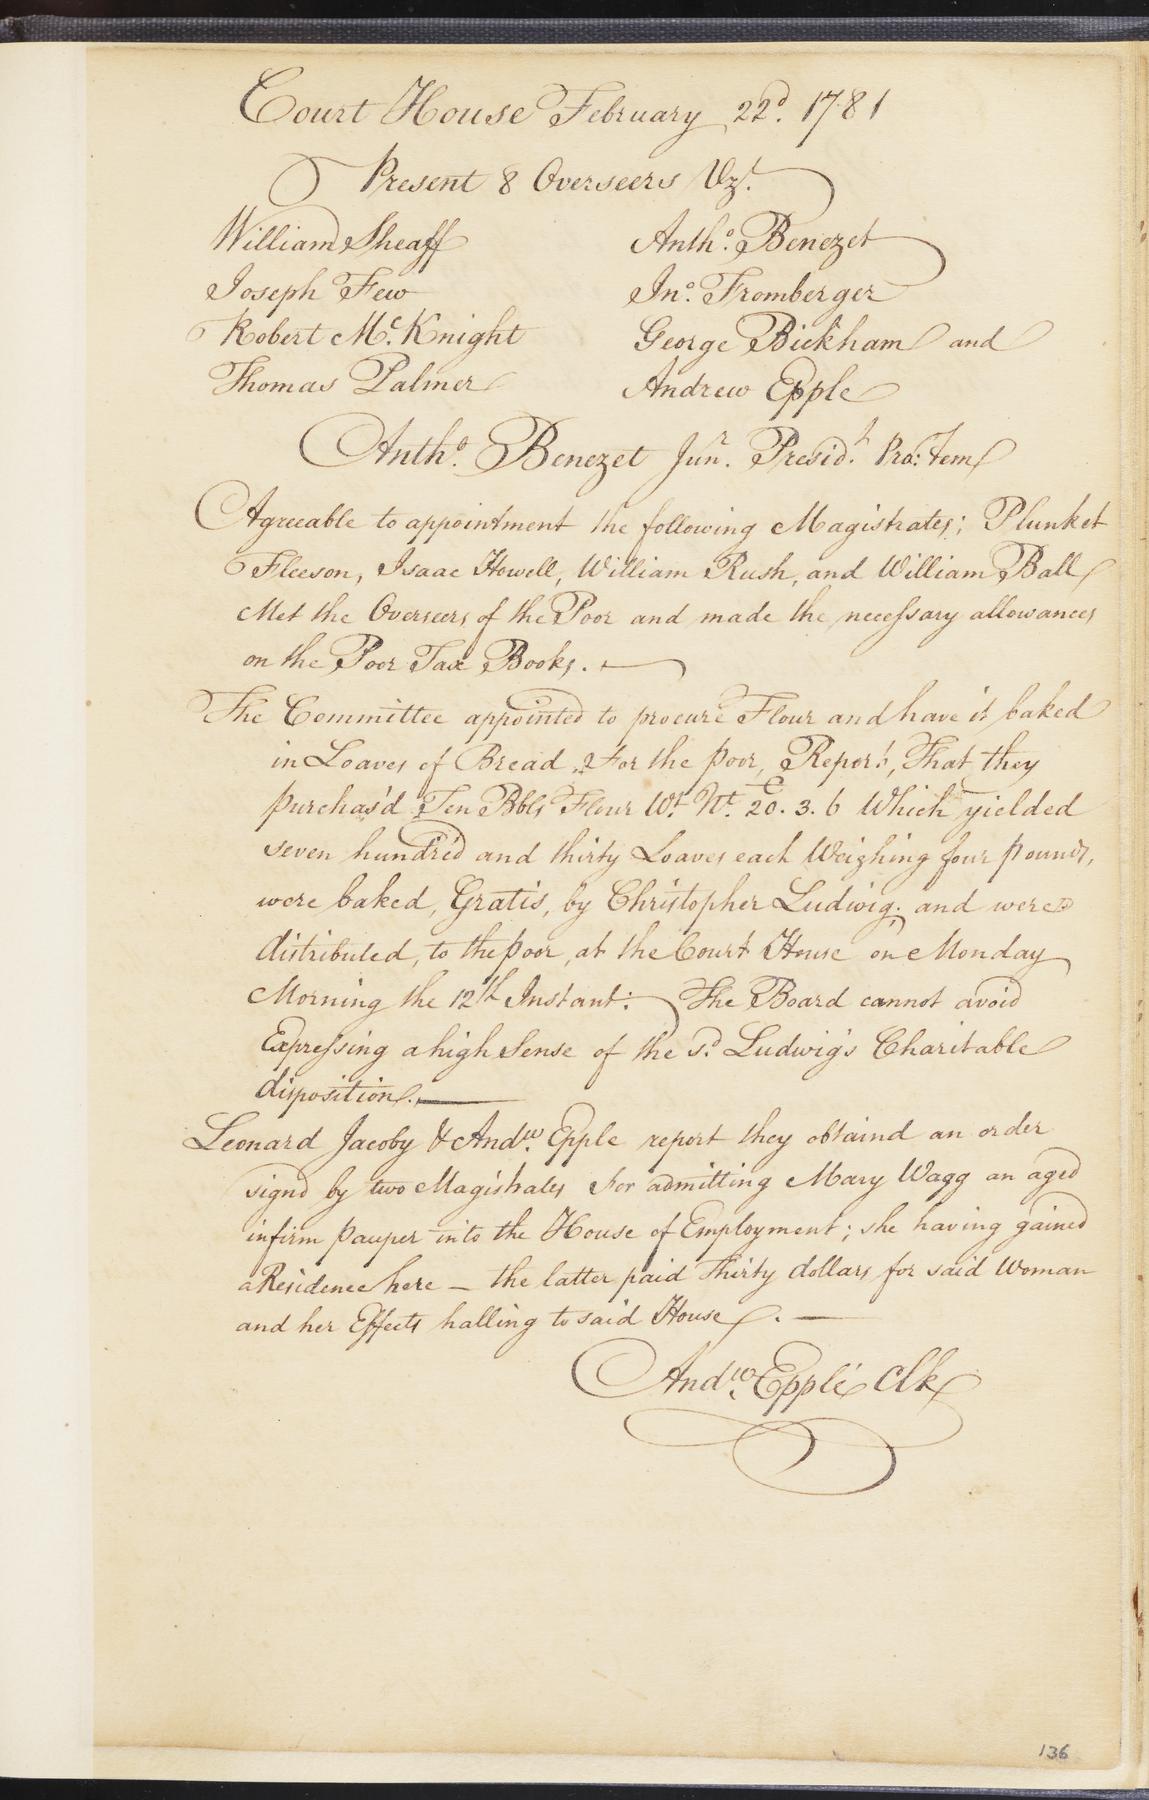 Court House February 22d. 1781
Present 8 Overseers Vzt.
William Sheaff Antho. Benezet
Joseph Few Jno. Fromberger
Robert Mc. Knight George Bickham and
Thomas Palmer Andrew Epple
Antho. Benezet Junr. Presidt. Pro: Tem
Agreeable to appointment the following Magistrates; Plunket
Fleeson, Isaac Howell, William Rush, and William Ball
Met the Overseers of the Poor and made the necessary allowances
on the Poor Tax Books. —
The Committee appointed to procure Flour and have it baked
in Loaves of Bread, For the poor, Report, That they
purchas'd Ten Bbls Flour Wt. Nt. 20. 3. 6 Which yielded
C
seven hundred and thirty Loaves each Weighing four pounds,
were baked, Gratis, by Christopher Ludwig; and were
distributed, to the poor, at the Court House on Monday
Morning the 12th Instant: The Board cannot avoid
Expressing a high Sense of the sd. Ludwig's Charitable
disposition. —
Leonard Jacoby & Andw. Epple report they obtaind an order
signd by two Magistrates for admitting Mary Wagg an aged
infirm pauper into the House of Employment; she having gained
a Residence here — the latter paid Thirty dollars for said Woman
and her Effects halling to said House. —
Andw. Epple Clk
136